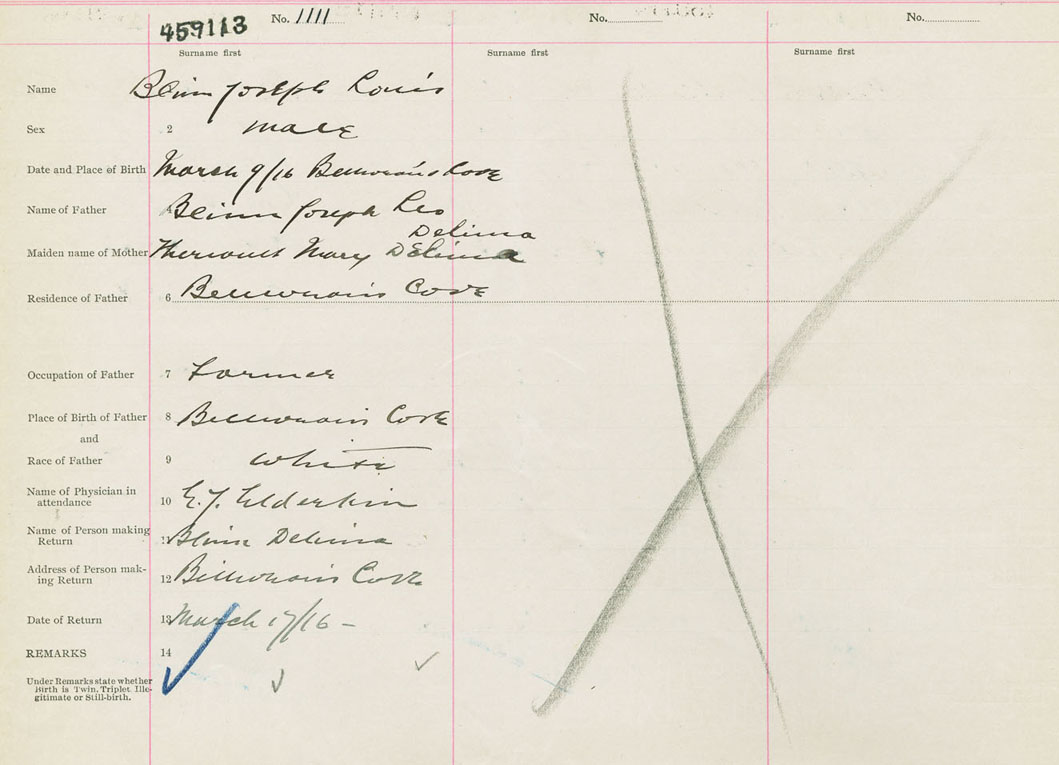 459113 No. 1111 No. No.
Surname first Surname first Surname first
Name Blinn Joseph Louis
Sex 2 male
Date and Place of Birth March 9/16 Belliveau's Cove
Name of Father 4 Blinn Joseph Leo
Delima
Maiden name of Mother Theriault Mary Delima
Residence of Father 6 Cove
Occupation of Father 7 Farmer
Place of Birth of Father 8 Cove
and
Race of Father 9 White
Name of Physician in
attendance 10 E.F. Elderkin
Name of Person making
Return 11 Blinn Delima
Address of Person mak-
ing Return 12 Cove
Date of Return 13 March 17/16 –
REMARKS 14
Under Remarks state whether
Birth is Twin, Triplet, Ille-
gitimate or Still-birth.